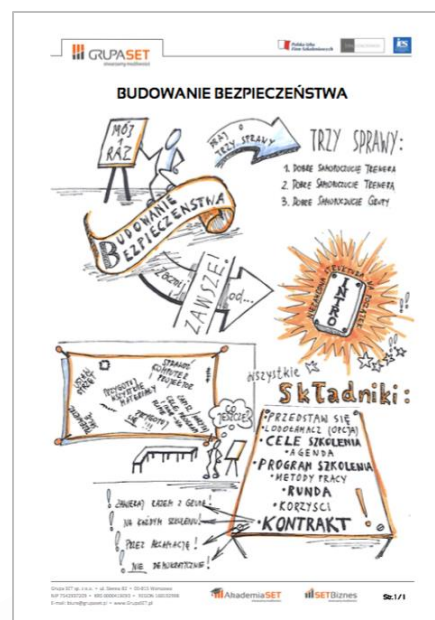 GRUPASET
stwarzamy możliwości
Polska Izba
Firm Szkoleniowych
ics
BUDOWANIE BEZPIECZEŃSTWA
MÓJ
1
RAZ
TRZY SPRAWY
TRZY SPRAWY:
1. DOBRE SAMOPOCZUCIE TRENERA
2. DOBRE SAMOPOCZUCIE TRENERA
3. DOBRE SAMOPOCZUCIE GRUPY
BUDOWANIE
BEZPIECZEŃSTWA
ZACZNIJ
ZAWSZE!
od...
INTRO
SPRAWDŹ
KOMPUTER
PROJEKTOR
PRZYGOTUJ
WSZYSTKIE
MATERIAŁY
CO
JESZCZE?
wszystkie
Składniki:
• PRZEDSTAW SIĘ
• LODOŁAMACZ (OPCJA)
• CELE SZKOLENIA
• AGENDA
• PROGRAM SZKOLENIA
• METODY PRACY
• RUNDA
• KORZYŚCI
• KONTRAKT !
! ZAWIERAJ RAZEM Z GRUPĄ!
! NA KAŻDYM SZKOLENIU!
! PRZEZ AKLAMACJĘ!
! NIE DEMOKRATYCZNIE!
AkademiaSET
SETBiznes
Str.1/1
E-mail: biuro@grupaset.pl • www.GrupaSET.pl